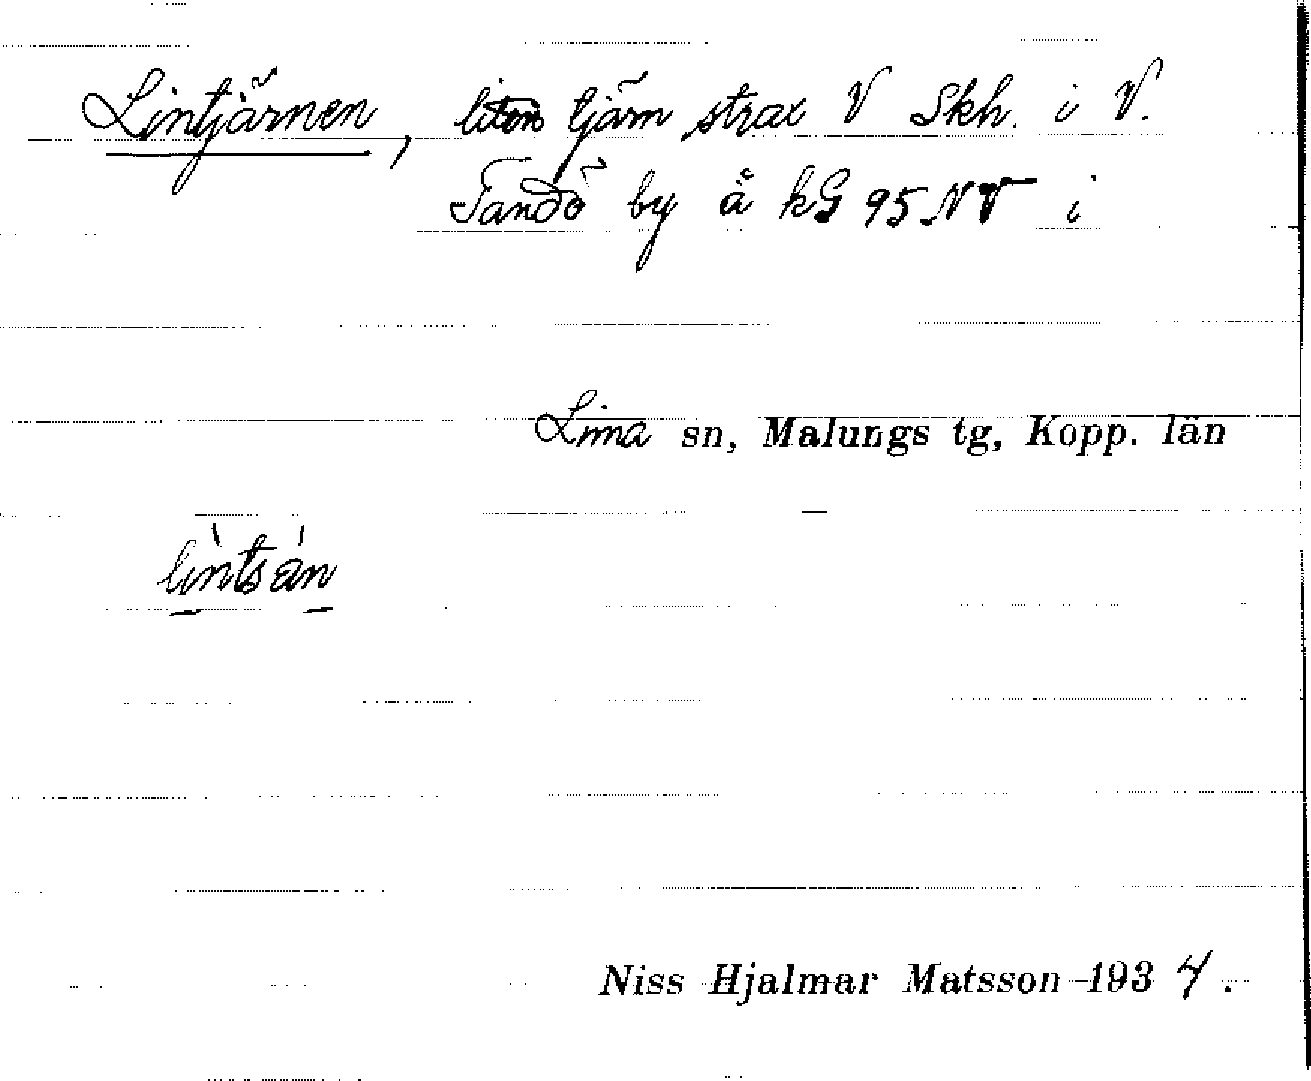 Lintjärnen, liten tjärn strax V Skh. i V.
Tandö by å kG 95 NV i
Lima sn, Malungs tg, Kopp. län
lìntsán
Niss Hjalmar Matsson 1934.